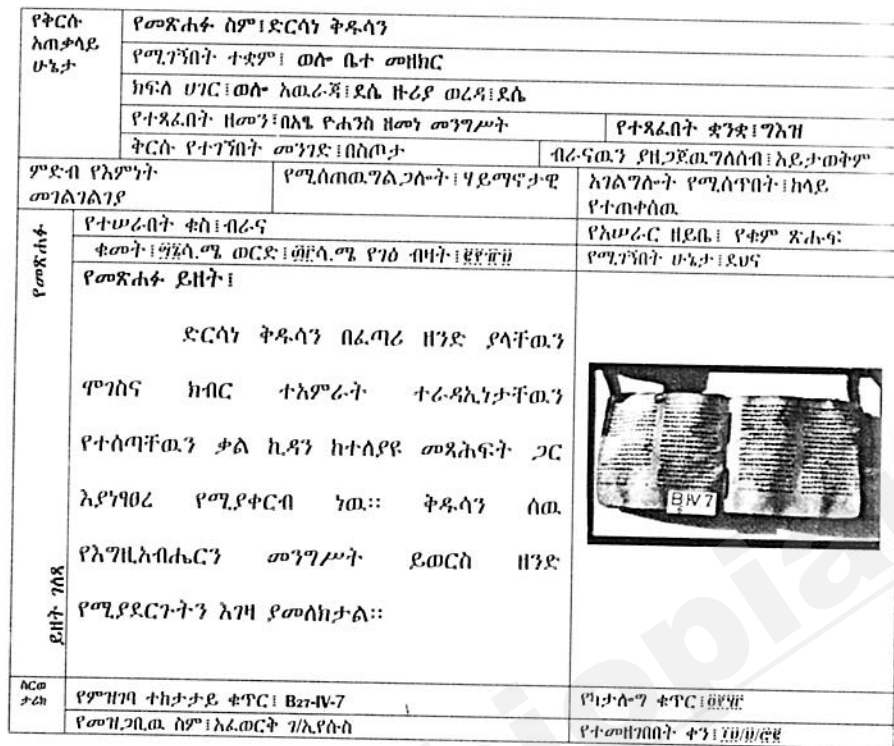 የቅርሱ አጠቃላይ ሁኔታ
የመጽሐፉ ስም፤ድርሳነ ቅዱሳን
የሚገኝበት ተቋም፤ ወሎ ቤተ መዘክር
ክፍለ ሀገር፤ወሎ አዉራጃ፤ደሴ ዙሪያ ወረዳ፤ደሴ
የተጻፈበት ዘመን፤በአፄ ዮሐንስ ዘመነ መንግሥት
የተጻፈበት ቋንቋ፤ግእዝ
ቅርሱ የተገኘበት መንገድ፤በስጦታ
ብራናዉን ያዘጋጀዉግለሰብ፤አይታወቅም
ምድብ የእምነት መገልገልገያ
የሚሰጠዉግልጋሎት፤ሃይማኖታዊ
አገልግሎት የሚሰጥበት፤ከላይ
የተጠቀሰዉ
የመጽሐፉ ይዘት ገለጻ
የተሠራበት ቁስ፤ብራና
የአሠራር ዘይቤ፤ የቁም ጽሑፍ
ቁመት፤ ሳ.ሜ ወርድ፤ ሳ.ሜ የገፅ ብዛት፤
የሚገኝበት ሁኔታ፤ደህና
የመጽሐፉ ይዘት፤
ድርሳነ ቅዱሳን በፈጣሪ ዘንድ ያላቸዉን
ሞገስና ክብር ተአምራት ተራዳኢነታቸዉን
የተሰጣቸዉን ቃል ኪዳን ከተለያዩ መጻሕፍት ጋር
እያነፃፀረ የሚያቀርብ ነዉ፡፡ ቅዱሳን ሰዉ
የእግዚአብሔርን መንግሥት ይወርስ ዘንድ
የሚያደርጉትን እገዛ ያመለክታል፡፡
B IV 7
ስርወ ታሪክ
የምዝገባ ተከታታይ ቁጥር፤ B27-IV-7
የካታሎግ ቁጥር፤
የመዝጋቢዉ ስም፤አፈወርቅ ገ/ኢየሱስ
የተመዘገበበት ቀን፤